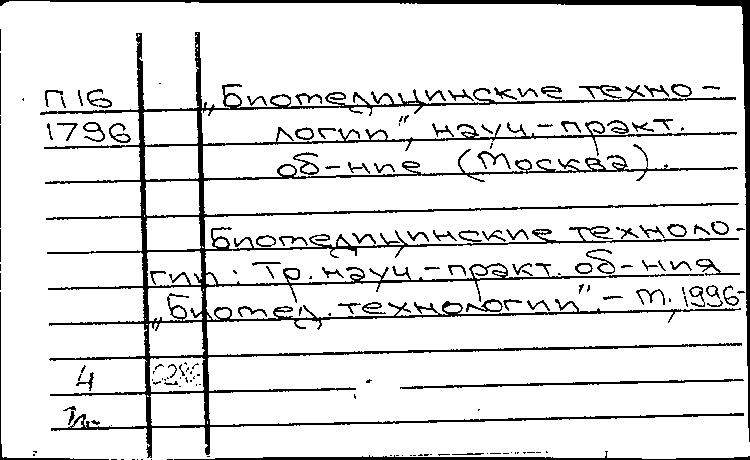 П16
1796
„Биомедицинские техно-
логии", науч.-практ.
об-ние (Москва).
Биомедицинские техноло-
гии: Тр. науч.-практ. об-ния
„Биомед. технологии". - М., 1996-
4